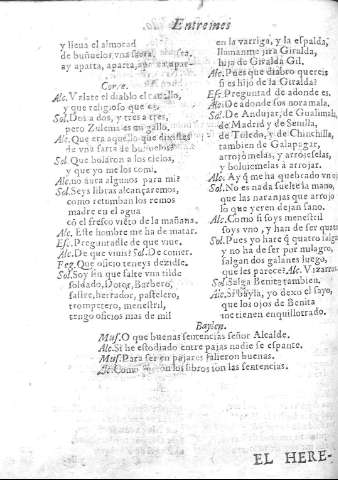 Entremes
y lleua el almorad
de buñuelos vna sarta,
ay aparta, aparta,
Corre.
Alc. Vzlate el diablo el cauallo,
y que religioso que es.
Sol. Dos a dos, y tres a tres,
pero Zulema es mi gallo.
Alc. Que era aquello que dixistes
de vna sarta de buñuelos?
Sol. Que bolaron a los cielos,
y que yo me los comi.
Alc. no aura algunos para mi?
Sol. Seys libras alcançaremos,
como retumban los remos
madre en el agua
cõ el fresco viẽto de la mañana.
Alc. Este hombre me ha de matar.
Esc. Preguntadle de que viue.
Alc. De que viuis? Sol. De comer.
Reg. Que oficio teneys dezidle.
Sol. Soy sin que falte vna tilde
soldado, Dotor, Barbero,
sastre, herrador, pastelero,
trompetero, menestril,
tengo oficios mas de mil
en la varriga, y la espalda,
llamanme jira Giralda,
hija de Giralda Gil.
Alc. Pues que diabro quereis
si es hijo de la Giralda?
Esc. Preguntad de adonde es.
Alc. De adonde sos noramala.
Sol. De Andujar, de Gualimal,
de Madrid y de Seuilla,
de Toledo, y de Chinchilla,
tambien de Galapagar,
arrojòmelas, y arrojeselas,
y boluiomelas à arrojar.
Alc. Ay q̃ me ha quebrado vn
Sol. No es nada suelte la mano,
que las naranjas que arrojo
lo que yeren dejan sano.
Alc. Como si soys menestril
soys vno, y han de ser quatro
Sol. Pues yo hare q̃ quatro salgan
y no ha de ser por milagro,
salgan dos galanes luego,
que les parece? Alc. Vizarros
Sol. Salga Benita tambien.
Alc. Si bayla, yo dexo el sayo,
que los ojos de Benita
me tienen enquillotrado.
Baylen.
Mus. O que buenas sentencias señor Alcalde.
Alc. Si he estodiado entre pajas nadie se espante.
Mus. Para ser en pajares salieron buenas.
Alc. Como son los libros son las sentencias.
EL HERE-